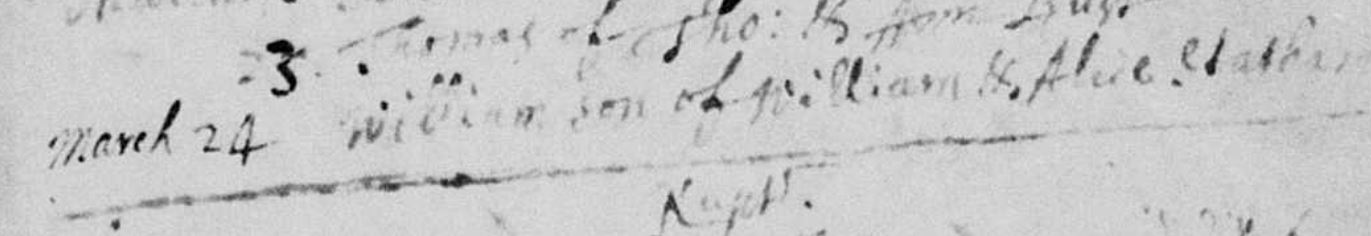 3 Thomas of Tho: & Ann
March 24 William son of William & Alice Statham
Nupt: